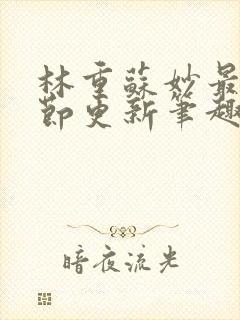 林重蘇妙最
節更新筆趣
暗夜流光